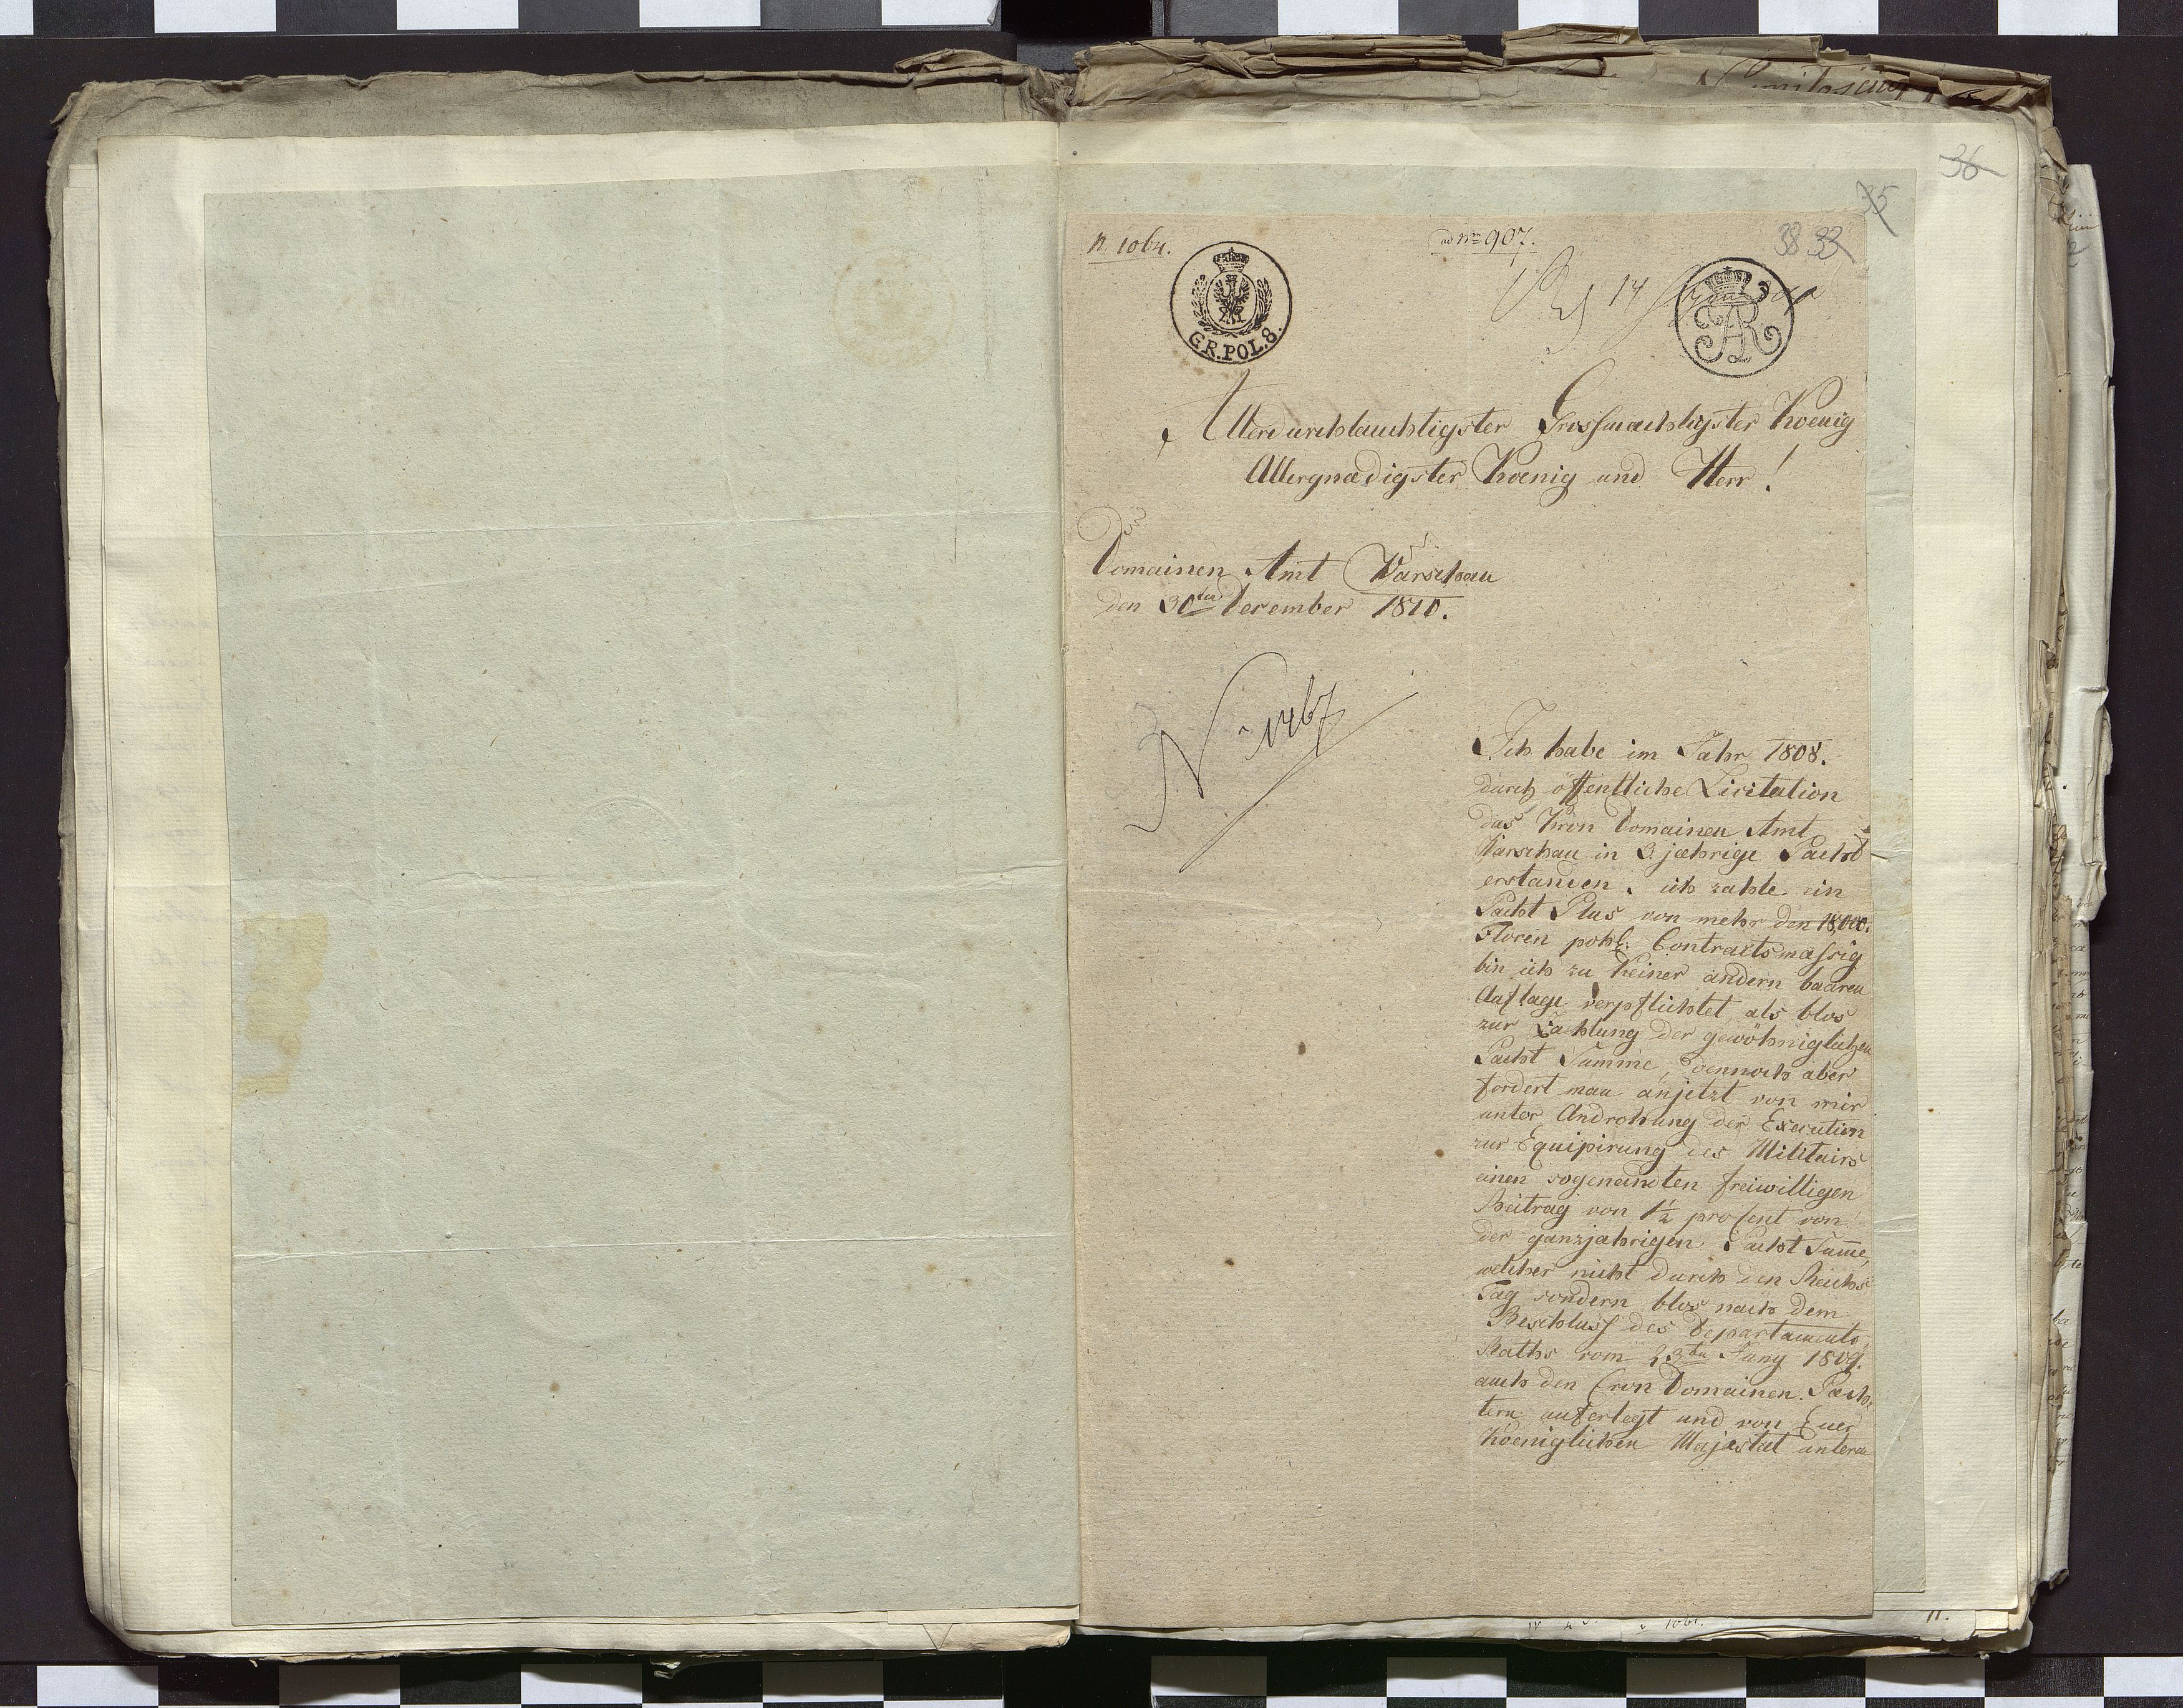 36
35
38 33
n. 1064.
ad nro 907.
GR.POL.8.
Allerdurchlauchtigster Grosmaechtigster Koenig
Allergnædigster Koenig und Herr!
Domainen Amt Warschau
den 30ten December 1810.
Ich habe im Jahr 1808.
durch öffentliche Licitation
das Kron Domainen Amt
Warschau in 3 jæhrige Pacht
erstanden. ich zahle ein
Pacht Plus von mehr den 18,000.
Floren pohl: Contractsmassig
bin ich zu Keiner andern baaren
Auflage verpflichtet als blos
zur Zahlung der gewöhniglichen
Pacht Summe, dennoch aber
fordert man anjetzt von mir
unter Androhung der Execution
zur Equipirung des Militairs
einen sogenandten freiwilligen
Beitrag von 1½ procent von
der ganzjahrigen Pacht Sume,
welcher nicht durch den Reichs
Tag sondern blos nach dem
Beschluss des Departaments
Raths vom 23ten Juny 1809.
auch den Cron Domainen Pæch
tern auferlegt und von Euer
Koeniglichen Majestæt unterm